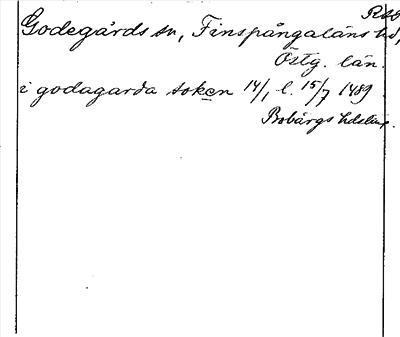 Godegårds sn, Finspångaläns hd,
Östg. län.
i godagarda soken 14/1 l. 15/7 1489.
Bobärgs